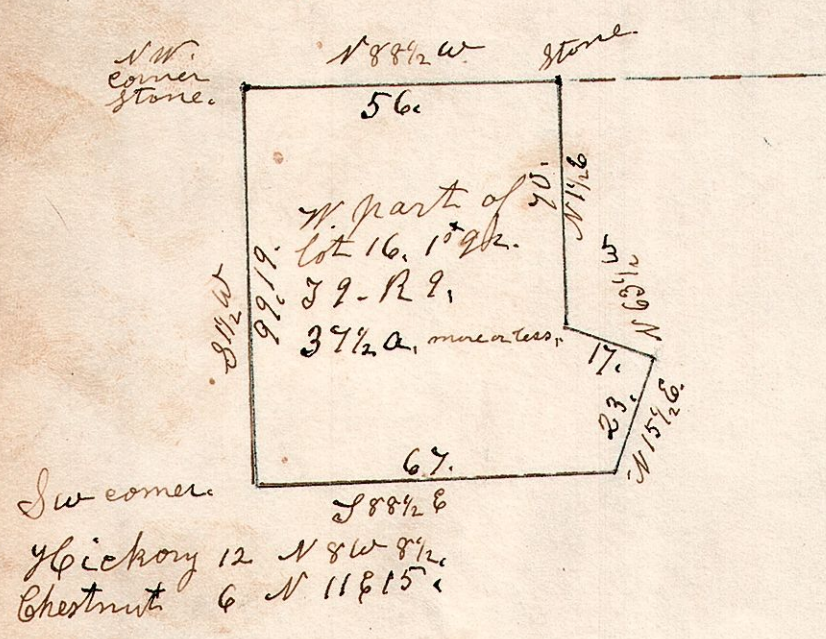 N.W. corner stone.
N 88½ W.
Stone.
56.
70.
N 1½ E
W. part of
lot 16. 1st qr.
T 9. R 9.
37½ a. more or less.
S 1½ W
N 63½ W
17.
23.
N 15½ E.
67.
S 88½ E
SW corner.
Hickory 12 N 8 W 8½.
Chestnut 6 N 11 E 15.